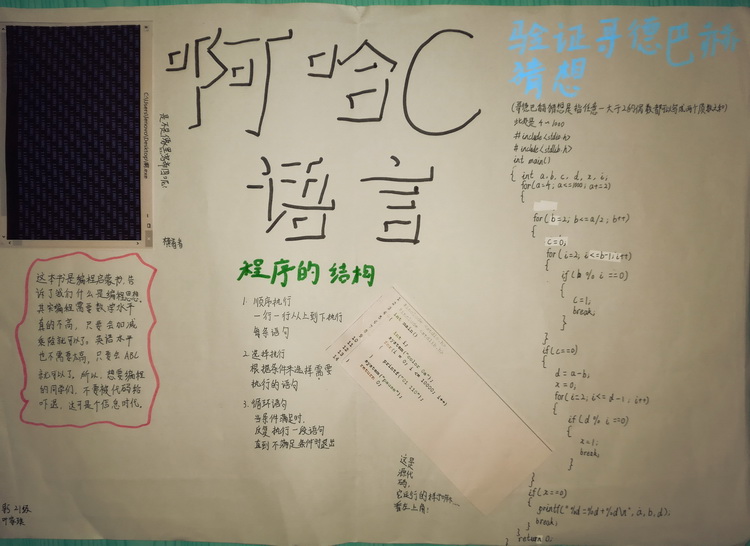 啊哈C
语言
验证哥德巴赫
猜想
(哥德巴赫猜想是指任意一大于2的偶数都可以写成两个质数之和)
此处是 4~1000
#include<stdio.h>
#include<stdlib.h>
int main()
{ int a, b, c, d, x, i;
for(a=4; a<=1000; a+=2)
{
for(b=2; b<=a/2; b++)
{
c=0;
for(i=2; i<=b-1; i++)
{
if(b % i ==0)
{
c=1;
break;
}
}
if(c==0)
{
d = a-b;
x = 0;
for(i=2; i<= d-1; i++)
{
if(d % i ==0)
{
x=1;
break;
}
}
if(x==0)
{
printf("%d=%d+%d\n", a, b, d);
break;
}
return 0;
程序的结构
1. 顺序执行
一行一行从上到下执行
每条语句
2. 选择执行
根据条件来选择需要
执行的语句
3. 循环语句
当条件满足时,
反复执行一段语句
直到不满足条件时退出
这本书是编程启蒙书,告
诉了我们什么是编程思想。
其实编程需要数学水平
真的不高,只要会加减
乘除就可以了。英语水平
也不需要太高,只要会ABC
就可以了。所以,想要编程
的同学们,不要被代码给
吓退,这可是个信息时代。
int main()
{
int i;
system("color 0a");
for(i = 0; i <= 10000; i++)
{
}
system("pause");
return 0;
这是
源代
码,
看左上角!